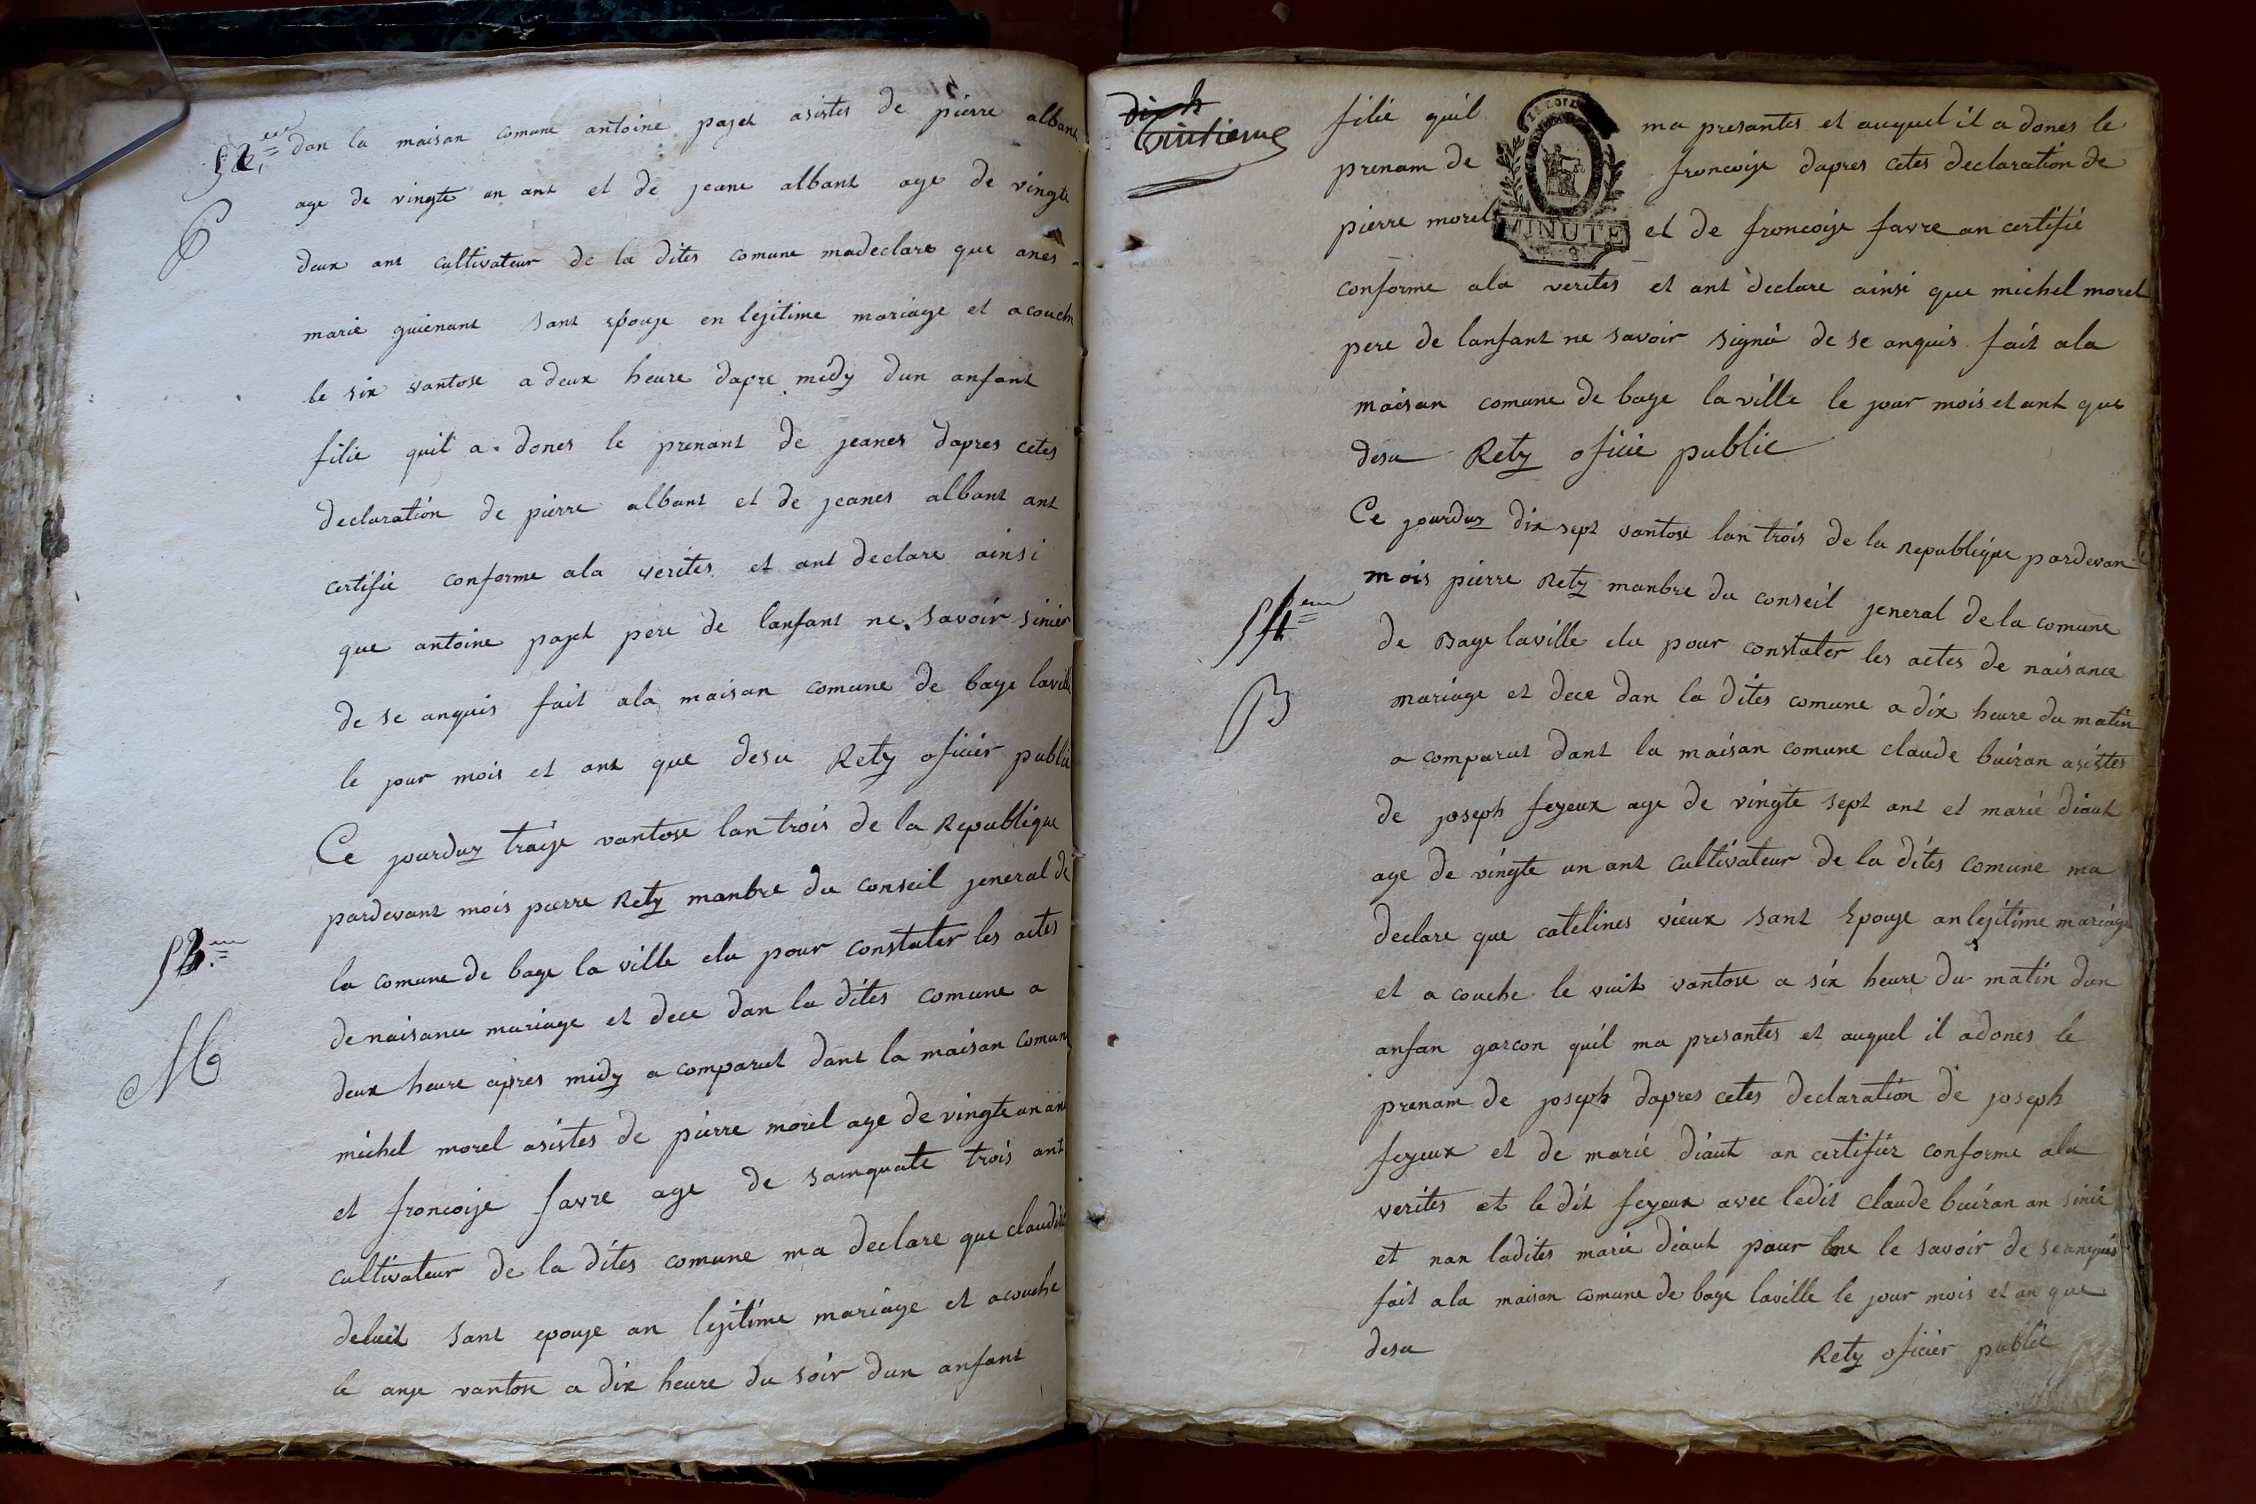 52.eme
dan la maison comune antoine pajet asistes de pierre albant
age de vingte un ant et de jeane albant age de vingte
P
deux ant cultivateur de la dites comune madeclare que anes
marie guienant sant epouje en lejitime mariage et acouche
le six vantose a deux heure dapre midy dun anfant
filie quil a dones le prenant de jeanes dapres cetes
declaration de pierre albant et de jeanes albant ant
certifie conforme ala verites et ant declare ainsi
que antoine pajet pere de lanfant ne savoir sinier
de se anquis fait ala maison comune de bage laville
le jour mois et ant que desu Rety oficier public
Ce jourduy traije vantose lan trois de la Republique
pardevant mois pierre Rety manbre du conseil jeneral de
53.eme
la comune de bage la ville elu pour constater les actes
de naisance mariage et dece dan la dites comune a
M
deux heure apres midy a comparut dant la maison comune
michel morel asistes de pierre morel age de vingte un ant
et froncoije favre age de sainquate trois ant
cultivateur de la dites comune ma declare que claudine
deluit sant epouje an lejitime mariage et acouche
le anje vantose a dix heure du soir dun anfant
filie quil ma presantes et auquel il a dones le
prenam de froncoije dapres cetes declaration de
pierre morel et de froncoije favre an certifie
MINUTE
conforme ala verites et ant declare ainsi que michel morel
pere de lanfant ne savoir signè de se anquis fait ala
maison comune de bage laville le jour mois et ant que
desu Rety oficie public
Ce jourduy dix sept vantose lan trois de la Republique pardevan
mois pierre Rety manbre du conseil jeneral de la comune
54.eme
de Bage laville elu pour constater les actes de naisance
mariage et dece dan la dites comune a dix heure du matin
B
a comparut dant la maison comune claude buiran asistes
de joseph feyeux age de vingte sept ant et marie diaut
age de vingte un ant cultivateur de la dites comune ma
declare que catelines vieux sant Epouje an lejitime mariage
et a couche le vuit vantose a six heure du matin dun
anfan garcon quil ma presantes et auquel il adones le
prenam de joseph dapres cetes declaration de joseph
feyeux et de marie diaut an certifier conforme ala
verites et le dit feyeux avec ledit claude buiran an sinie
et nan ladites marie diaut pour ne le savoir de se anquis
fait ala maison comune de bage laville le jour mois et an que
desu Rety oficier public